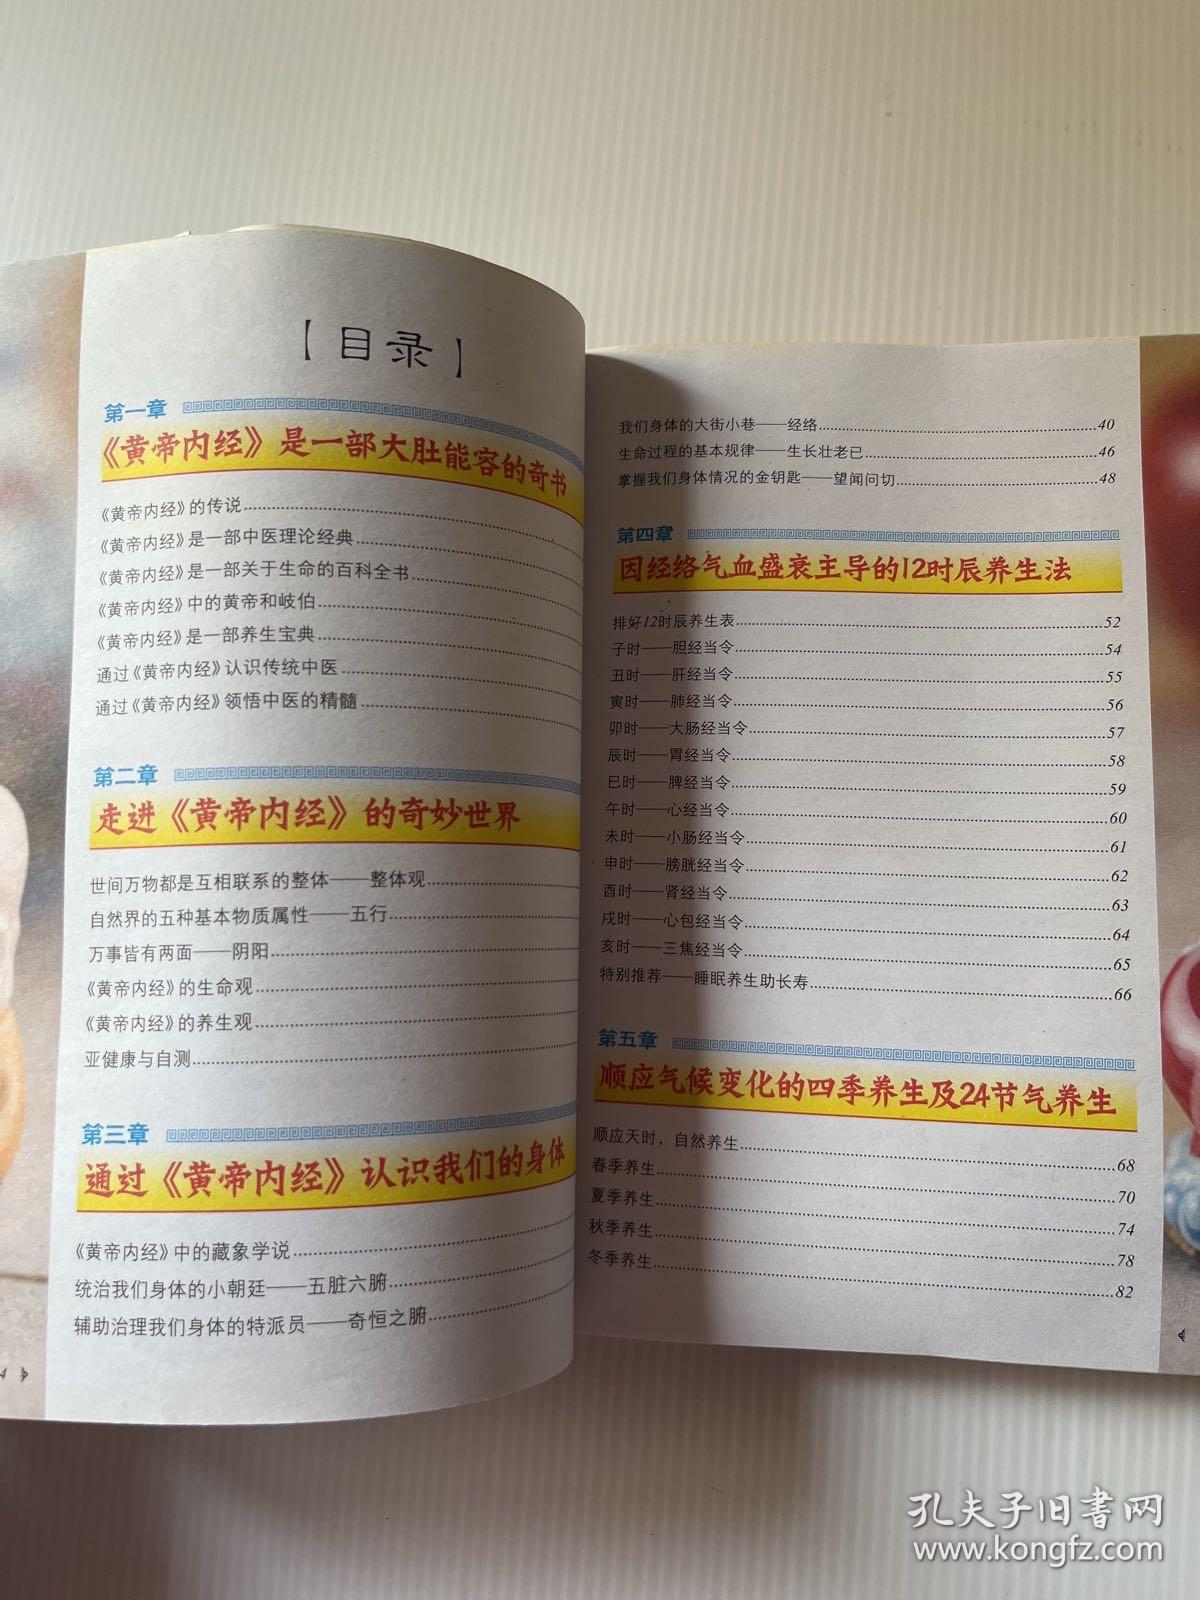 【目录】
第一章
《黄帝内经》是一部大肚能容的奇书
《黄帝内经》的传说
《黄帝内经》是一部中医理论经典
《黄帝内经》是一部关于生命的百科全书
《黄帝内经》中的黄帝和岐伯
《黄帝内经》是一部养生宝典
通过《黄帝内经》认识传统中医
通过《黄帝内经》领悟中医的精髓
第二章
走进《黄帝内经》的奇妙世界
世间万物都是互相联系的整体——整体观
自然界的五种基本物质属性——五行
万事皆有两面——阴阳
《黄帝内经》的生命观
《黄帝内经》的养生观
亚健康与自测
第三章
通过《黄帝内经》认识我们的身体
《黄帝内经》中的藏象学说
统治我们身体的小朝廷——五脏六腑
辅助治理我们身体的特派员——奇恒之腑
4
我们身体的大街小巷——经络 40
生命过程的基本规律——生长壮老已 46
掌握我们身体情况的金钥匙——望闻问切 48
第四章
因经络气血盛衰主导的12时辰养生法
排好12时辰养生表 52
子时——胆经当令 54
丑时——肝经当令 55
寅时——肺经当令 56
卯时——大肠经当令 57
辰时——胃经当令 58
巳时——脾经当令 59
午时——心经当令 60
未时——小肠经当令 61
申时——膀胱经当令 62
酉时——肾经当令 63
戌时——心包经当令 64
亥时——三焦经当令 65
特别推荐——睡眠养生助长寿 66
第五章
顺应气候变化的四季养生及24节气养生
顺应天时，自然养生 68
春季养生 70
夏季养生 74
秋季养生 78
冬季养生 82
孔夫子旧书网
www.kongfz.com